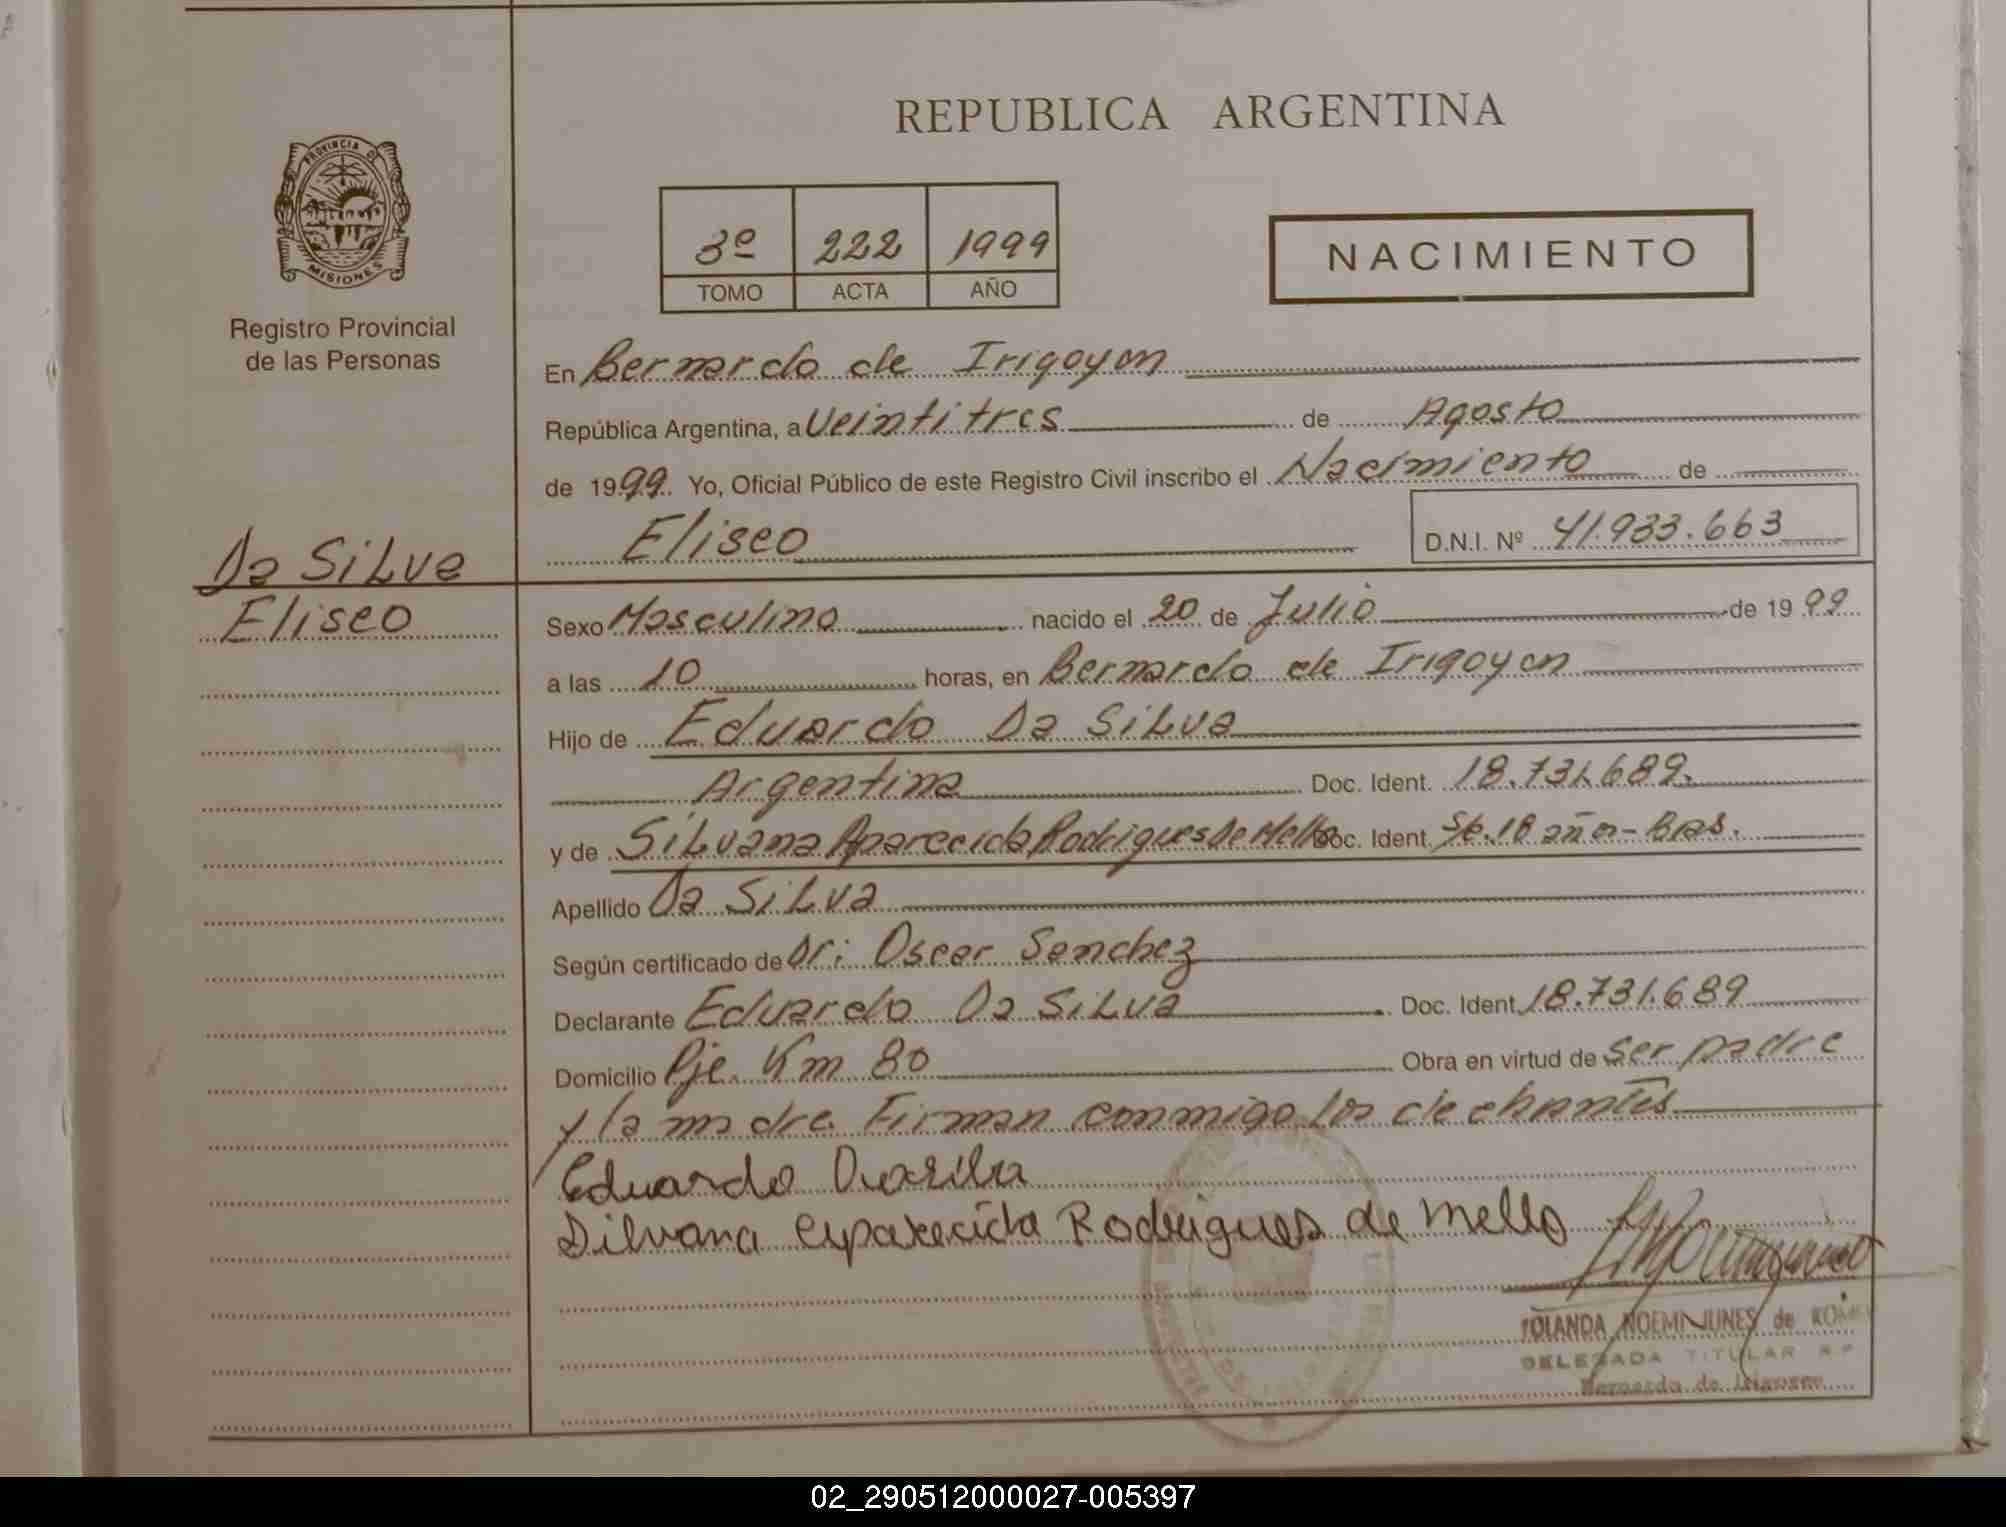 REPUBLICA ARGENTINA
PROVINCIA DE
MISIONES
Registro Provincial
de las Personas
3º 222 1999
TOMO ACTA AÑO
NACIMIENTO
En Bernardo de Irigoyen
República Argentina, a Veintitres de Agosto
de 1999. Yo, Oficial Público de este Registro Civil inscribo el Nacimiento de
Eliseo D.N.I. Nº 41.933.663
Da Silva
Eliseo
Sexo Masculino nacido el 20 de Julio de 1999
a las 10 horas, en Bernardo de Irigoyen
Hijo de Eduardo Da Silva
Argentina Doc. Ident. 18.731.689.
y de Silvana Aparecida Rodrigues De Mello Doc. Ident. 18 años - Bras.
Apellido Da Silva
Según certificado de Dr: Oscar Sanchez
Declarante Eduardo Da Silva Doc. Ident. 18.731.689
Domicilio Pje. Km 80 Obra en virtud de ser padre
y la madre. Firman conmigo los
Eduardo Dasilva
Silvana Aparecida Rodrigues de Mello
YOLANDA NOEMI NUNES de
DELEGADA TITULAR R.P.
Bernardo de Irigoyen
02_290512000027-005397